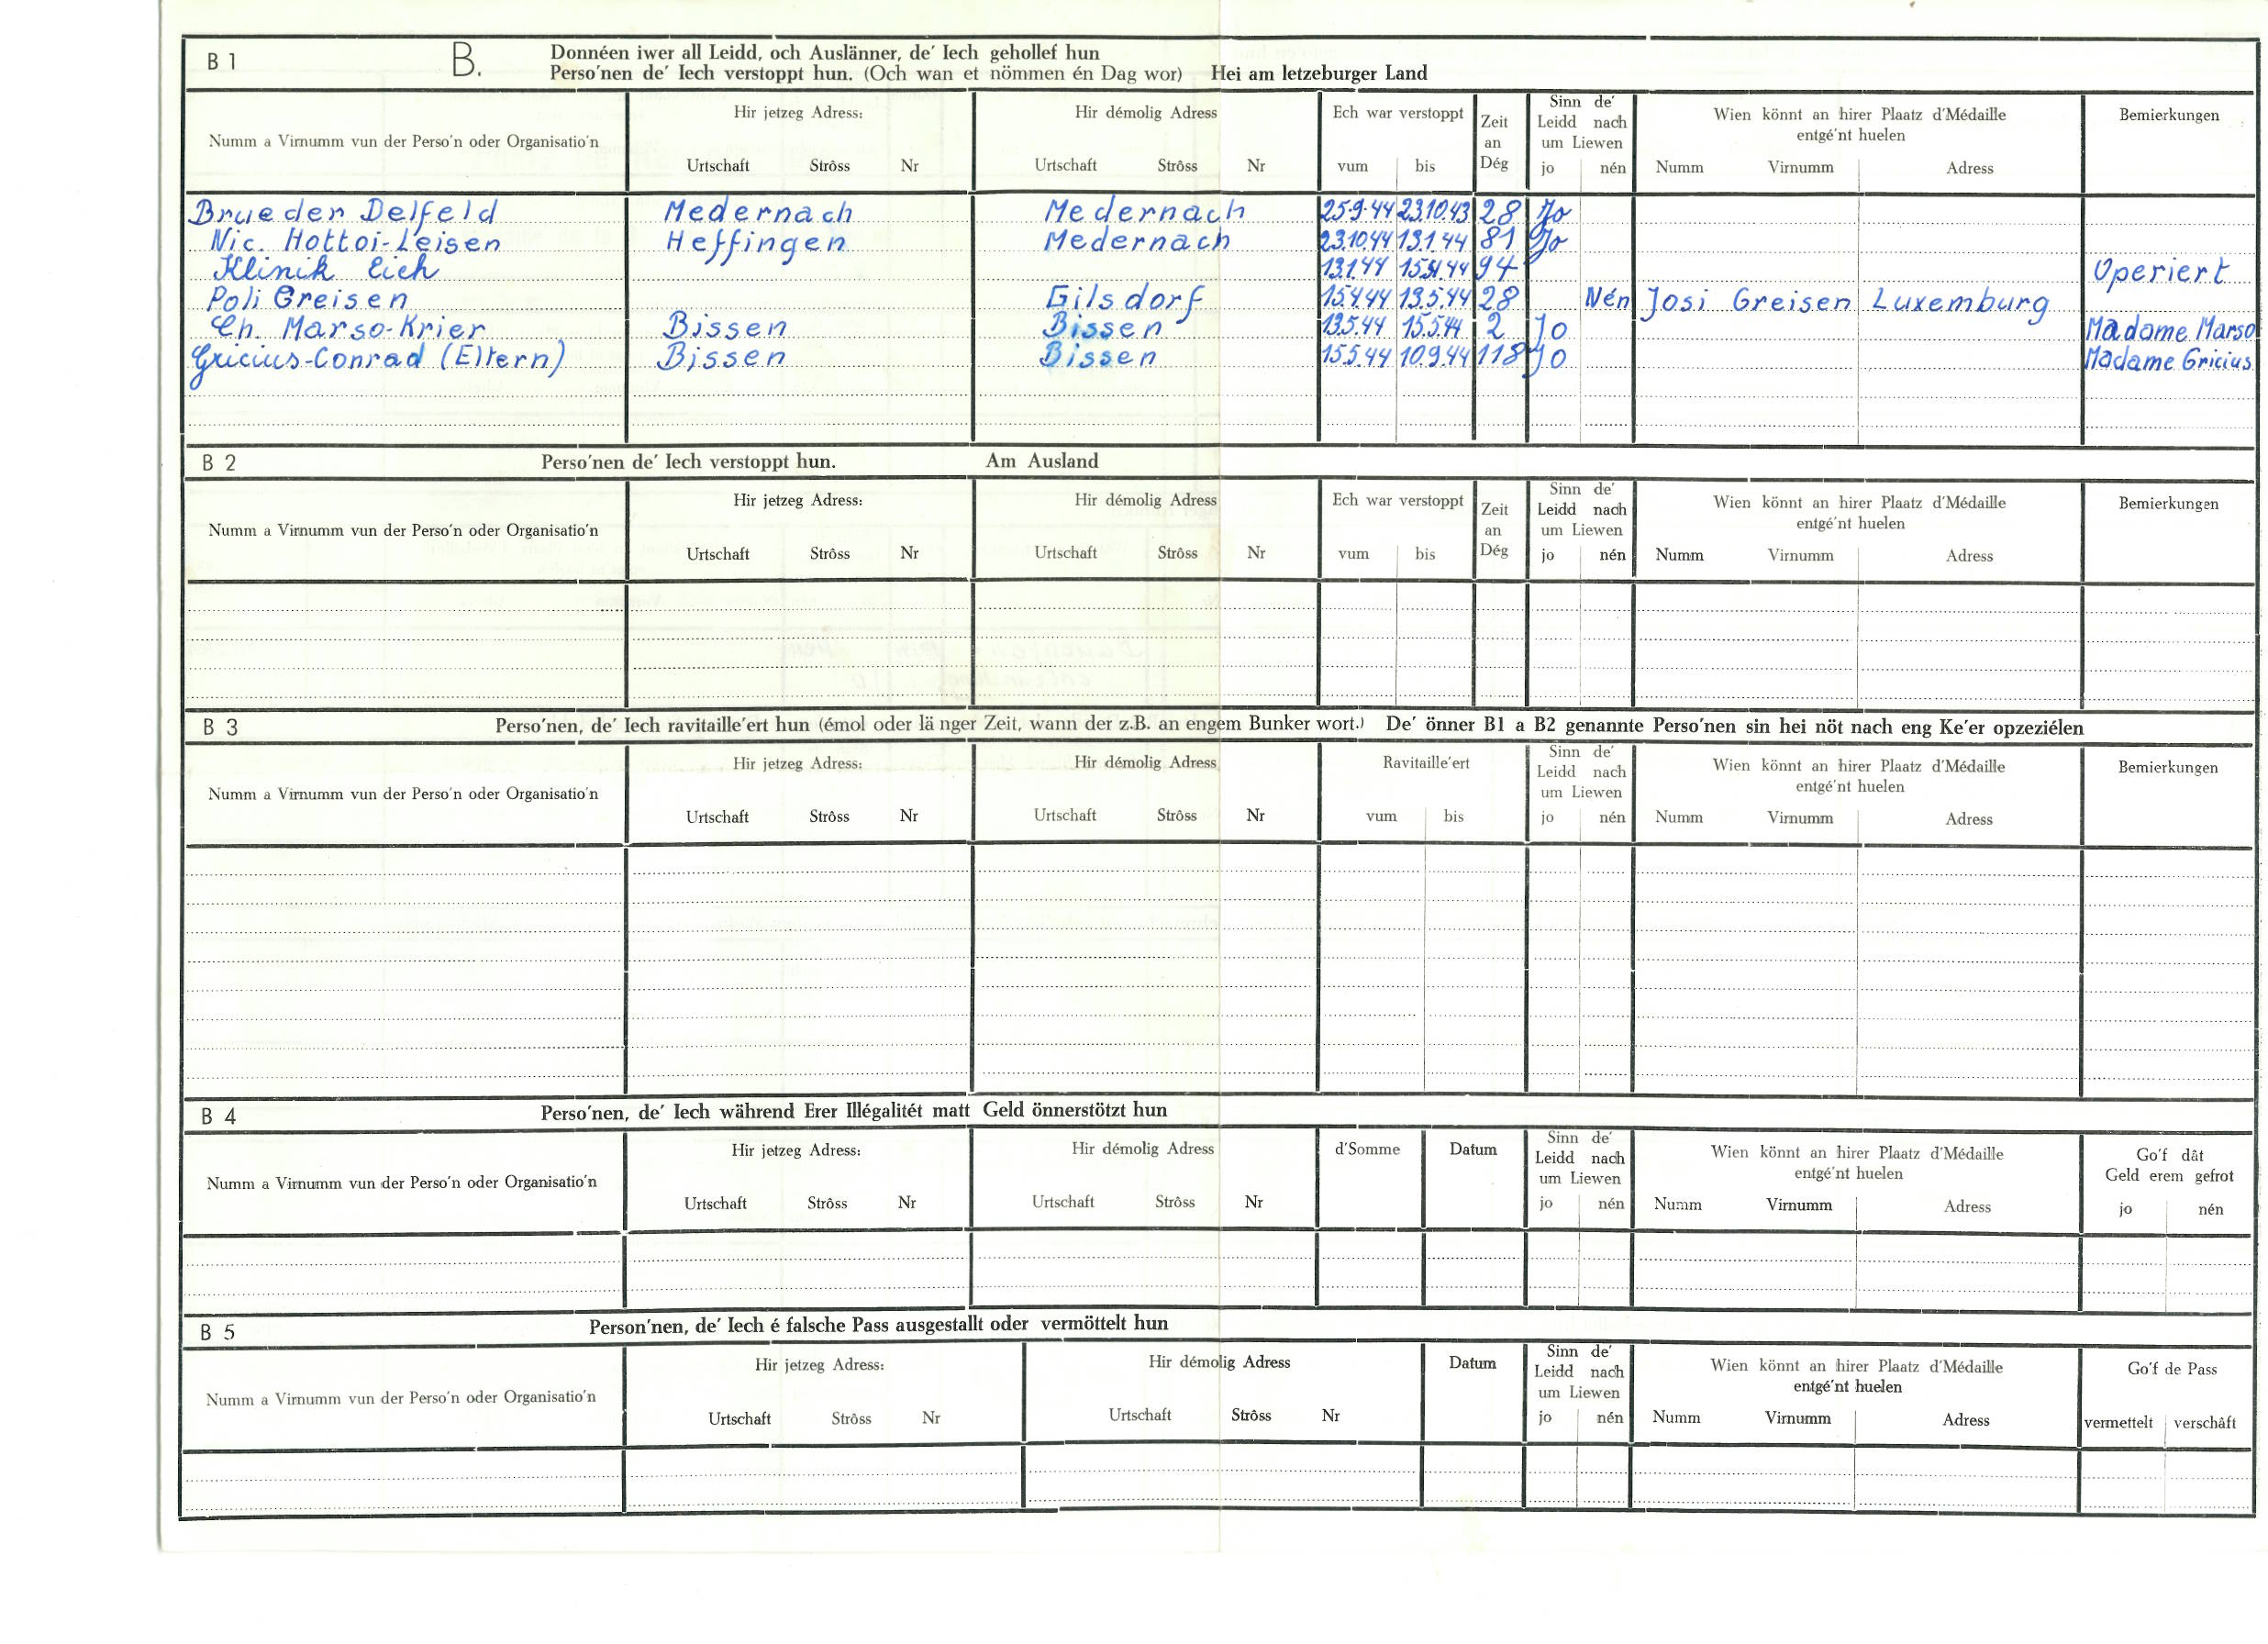 B 1 B. Donnéen iwer all Leidd, och Auslänner, de' Iech gehollef hun
Perso'nen de' Iech verstoppt hun. (Och wan et nömmen én Dag wor) Hei am letzeburger Land
Numm a Virnumm vun der Perso'n oder Organisatio'n Hir jetzeg Adress: Hir démolig Adress Ech war verstoppt Zeit an Dég Sinn de' Leidd nach um Liewen Wien könnt an hirer Plaatz d'Médaille entgé'nt huelen Bemierkungen
Urtschaft Strôss Nr Urtschaft Strôss Nr vum bis jo nén Numm Virnumm Adress
Brueder Delfeld Medernach Medernach 25.9.44 23.10.43 28 Jo
Nic. Hottoi-Leisen Heffingen Medernach 23.10.44 13.1.44 81 Jo
Klinik Eich 13.1.44 15.4.44 94 Operiert
Poli Greisen Gilsdorf 15.4.44 13.5.44 28 Nén Josi Greisen Luxemburg
Ch. Marso-Krier Bissen Bissen 13.5.44 15.5.44 2 Jo Madame Marso
Gricius-Conrad (Eltern) Bissen Bissen 15.5.44 10.9.44 118 Jo Madame Gricius
B 2 Perso'nen de' Iech verstoppt hun. Am Ausland
Numm a Virnumm vun der Perso'n oder Organisatio'n Hir jetzeg Adress: Hir démolig Adress Ech war verstoppt Zeit an Dég Sinn de' Leidd nach um Liewen Wien könnt an hirer Plaatz d'Médaille entgé'nt huelen Bemierkungen
Urtschaft Strôss Nr Urtschaft Strôss Nr vum bis jo nén Numm Virnumm Adress
B 3 Perso'nen, de' Iech ravitaille'ert hun (émol oder lä nger Zeit, wann der z.B. an engem Bunker wort.) De' önner B1 a B2 genannte Perso'nen sin hei nöt nach eng Ke'er opzeziélen
Numm a Virnumm vun der Perso'n oder Organisatio'n Hir jetzeg Adress: Hir démolig Adress Ravitaille'ert Sinn de' Leidd nach um Liewen Wien könnt an hirer Plaatz d'Médaille entgé'nt huelen Bemierkungen
Urtschaft Strôss Nr Urtschaft Strôss Nr vum bis jo nén Numm Virnumm Adress
B 4 Perso'nen, de' Iech während Erer Illégalitét matt Geld önnerstötzt hun
Numm a Virnumm vun der Perso'n oder Organisatio'n Hir jetzeg Adress: Hir démolig Adress d'Somme Datum Sinn de' Leidd nach um Liewen Wien könnt an hirer Plaatz d'Médaille entgé'nt huelen Go'f dât Geld erem gefrot
Urtschaft Strôss Nr Urtschaft Strôss Nr jo nén Numm Virnumm Adress jo nén
B 5 Person'nen, de' Iech é falsche Pass ausgestallt oder vermöttelt hun
Numm a Virnumm vun der Perso'n oder Organisatio'n Hir jetzeg Adress: Hir démolig Adress Datum Sinn de' Leidd nach um Liewen Wien könnt an hirer Plaatz d'Médaille entgé'nt huelen Go'f de Pass
Urtschaft Strôss Nr Urtschaft Strôss Nr jo nén Numm Virnumm Adress vermettelt verschâft